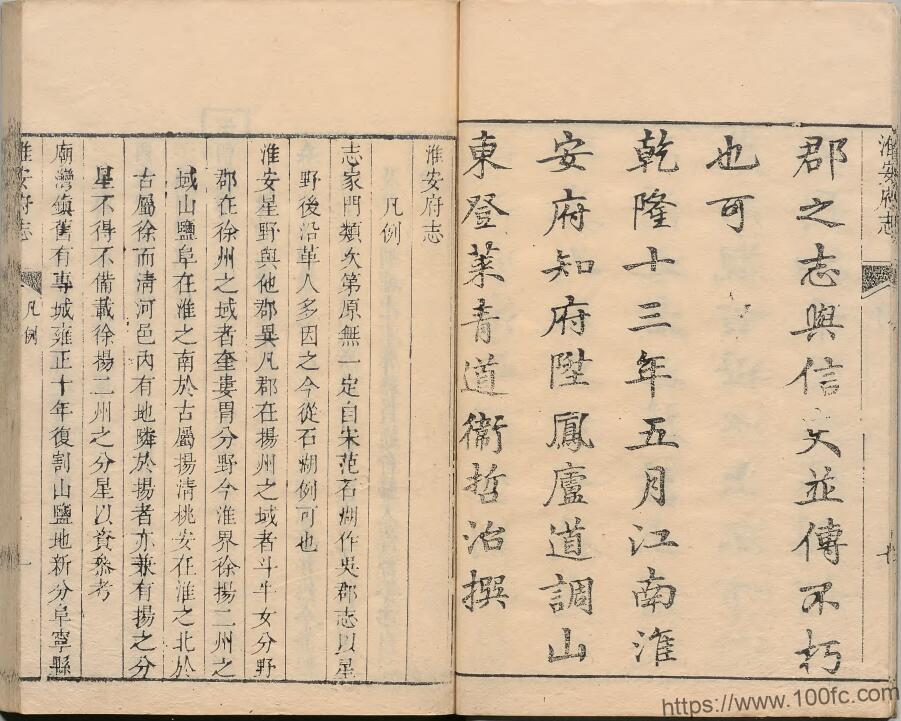 淮安府志
郡之志與信文並傳不朽
也可
乾隆十三年五月江南淮
安府知府陞鳳廬道調山
東登萊青道衞哲治撰
淮安府志
凡例
志家門類次第原無一定自宋范石湖作吳郡志以星
野後沿革人多因之今從石湖例可也
淮安星野與他郡異凡郡在揚州之域者斗牛女分野
郡在徐州之域者奎婁胃分野今淮界徐揚二州之
域山鹽阜在淮之南於古屬揚清桃安在淮之北於
古屬徐而清河邑內有地隣於揚者亦兼有揚之分
星不得不備載徐揚二州之分星以資叅考
廟灣鎮舊有專城雍正十年復割山鹽地新分阜寧縣
淮安府志
凡例
一
https://www.100fc.com